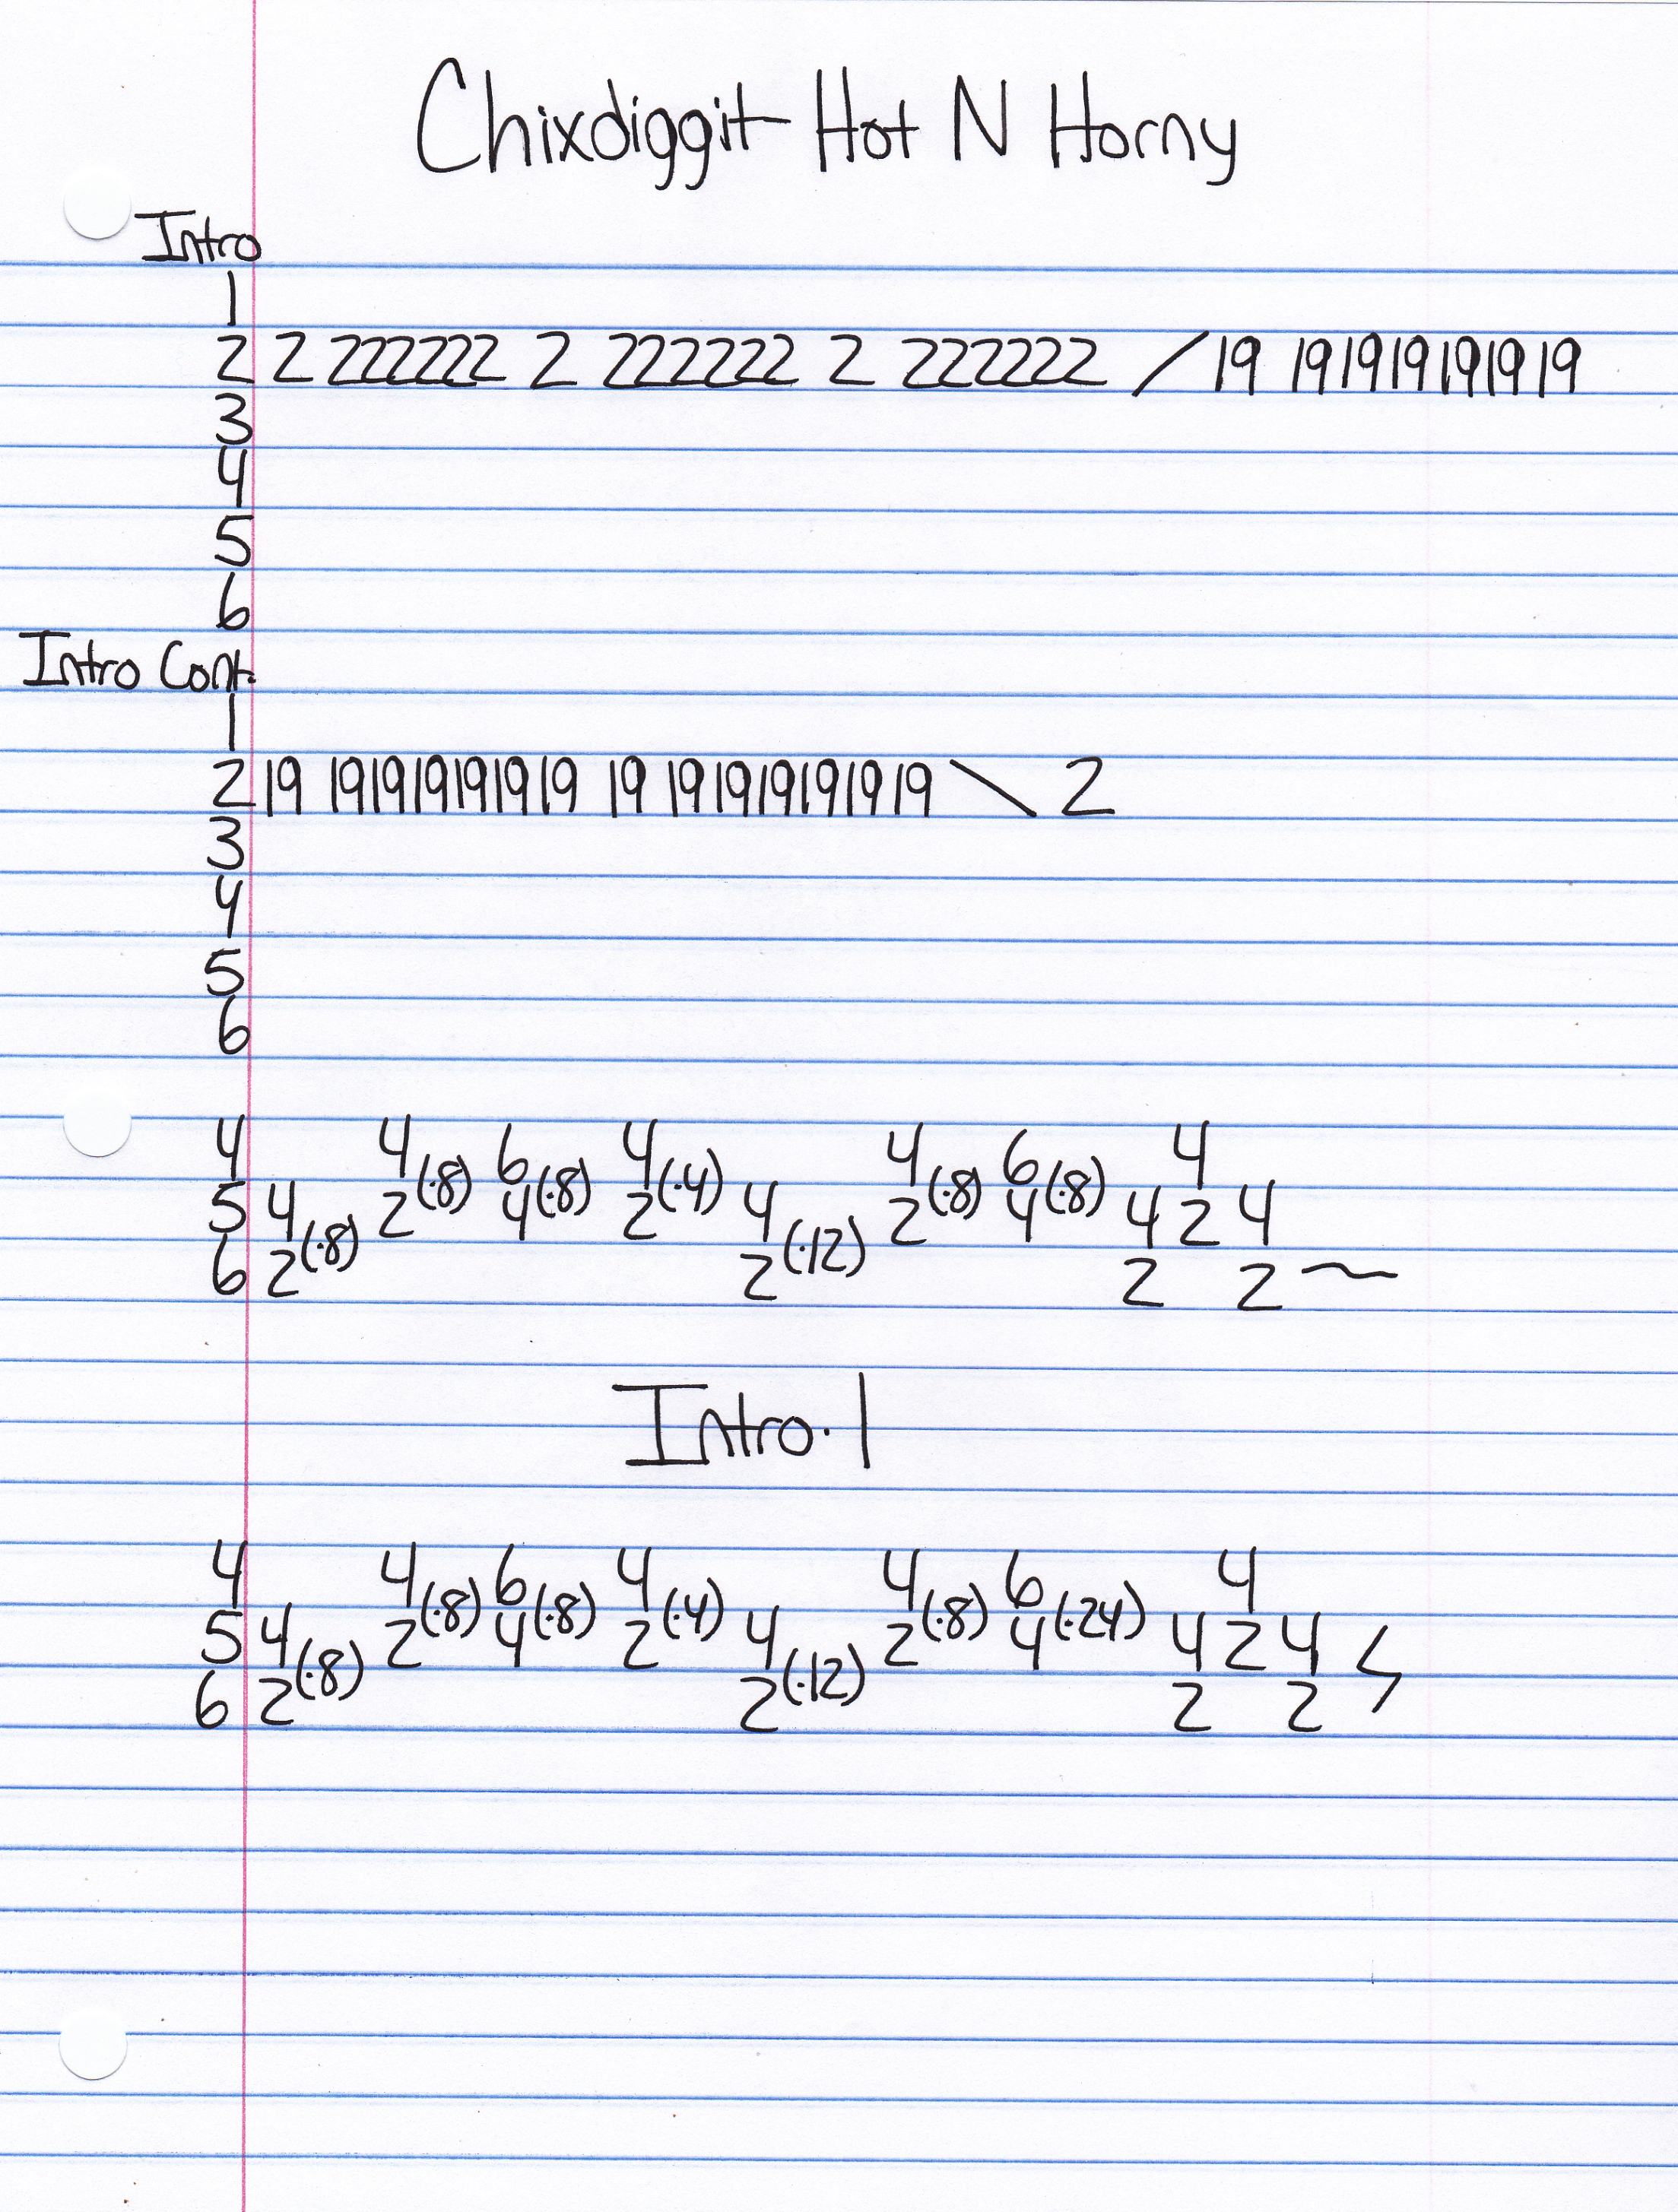 Chixdiggit Hot N Horny
Intro
1
2 2 222222 2 222222 2 222222 / 19 19 19 19 19 19 19
3
4
5
6
Intro Cont.
1
2 19 19 19 19 19 19 19 19 19 19 19 19 19 19 \ 2
3
4
5
6
4 4 6 4 4 6 4
5 4 2(.8) 4(.8) 2(.4) 4 2(.8) 4(.8) 4 2 4
6 2(.8) 2(.12) 2 2 ~
Intro.1
4 4 6 4 4 6 4
5 4 2(.8) 4(.8) 2(.4) 4 2(.8) 4(.24) 4 2 4
6 2(.8) 2(.12) 2 2